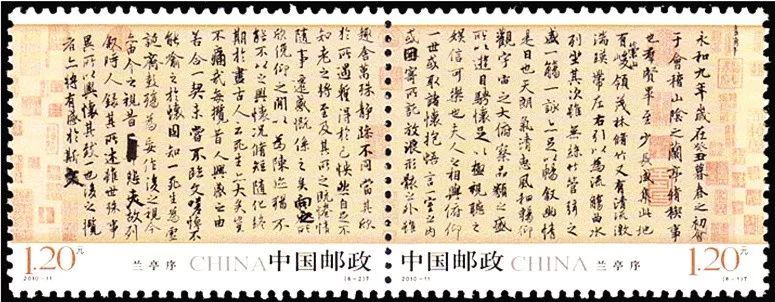 永和九年歲在癸丑暮春之初會
于會稽山陰之蘭亭脩稧事
也羣賢畢至少長咸集此地
有崇山峻領茂林脩竹又有清流激
湍暎帶左右引以為流觴曲水
列坐其次雖無絲竹管弦之
盛一觴一詠亦足以暢敘幽情
是日也天朗氣清惠風和暢仰
觀宇宙之大俯察品類之盛
所以遊目騁懷足以極視聽之
娛信可樂也夫人之相與俯仰
一世或取諸懷抱悟言一室之內
或因寄所託放浪形骸之外雖
趣舍萬殊靜躁不同當其欣
於所遇蹔得於己怏然自足不
知老之將至及其所之既惓情
隨事遷感慨係之矣向之所
欣俛仰之閒以為陳迹猶不
能不以之興懷況脩短隨化終
期於盡古人云死生亦大矣豈
不痛哉每攬昔人興感之由
若合一契未嘗不臨文嗟悼不
能喻之於懷固知一死生為虛
誕齊彭殤為妄作後之視今
亦由今之視昔悲夫故列
敘時人錄其所述雖世殊事
異所以興懷其致一也後之攬
者亦將有感於斯文
1.20元 兰亭序 CHINA 中国邮政
2010-11 (6-2)T
1.20元 中国邮政 CHINA 兰亭序
2010-11 (6-1)T